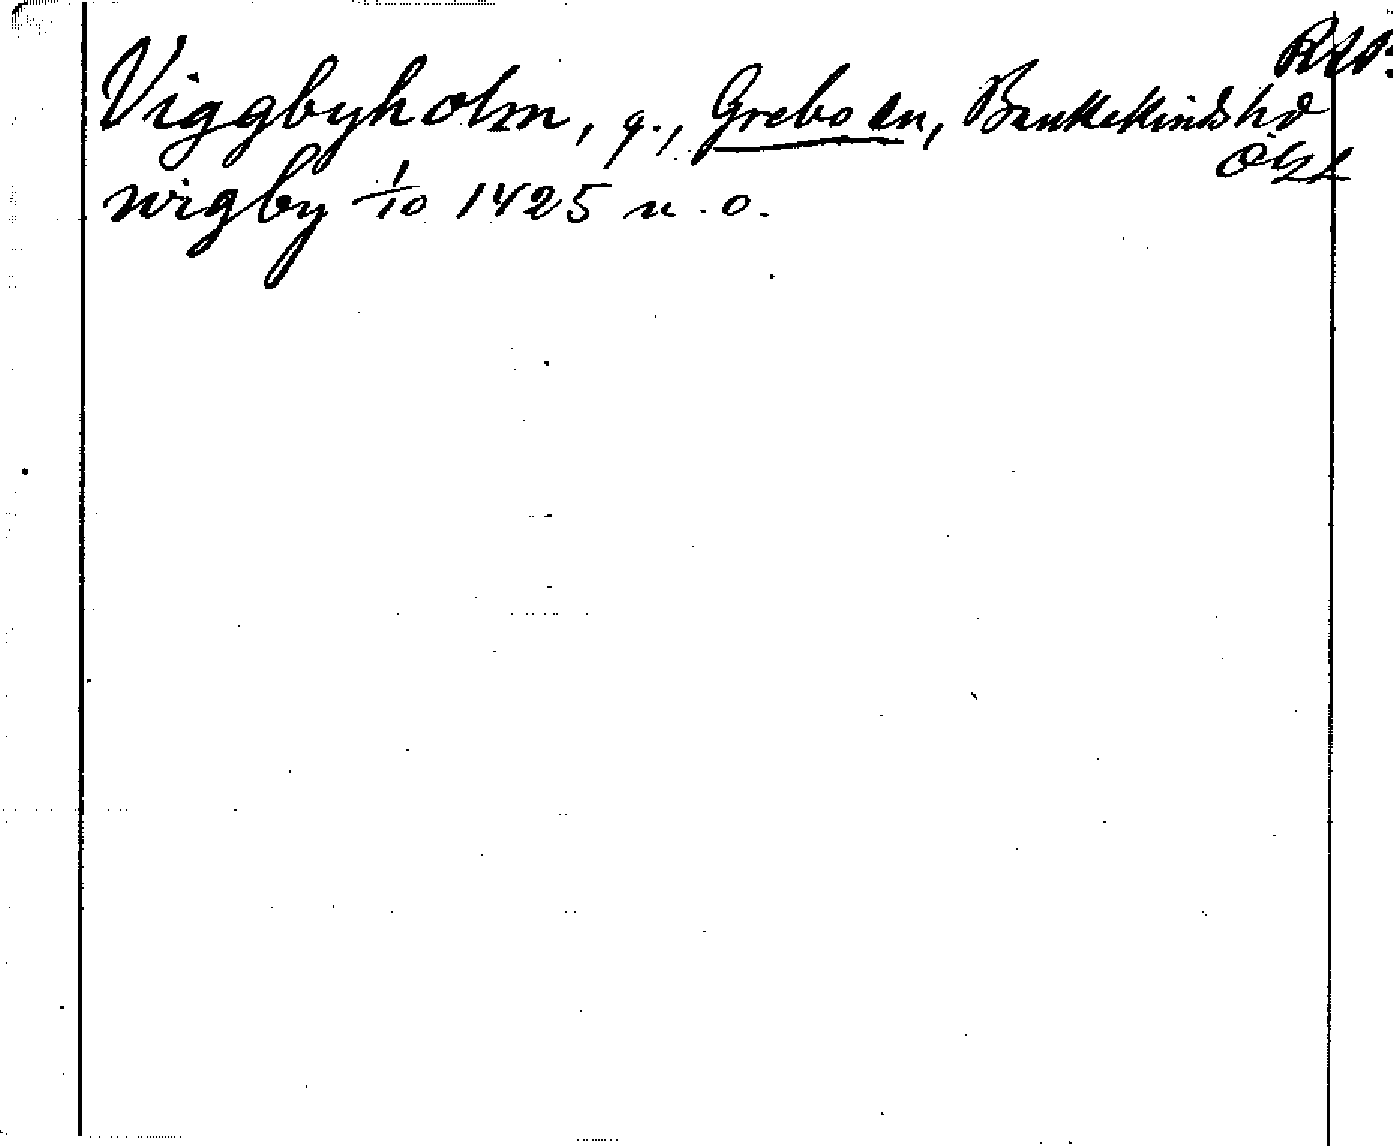 Viggbyholm, g., Grebo sn, Bankekinds hd
Ögl
wigby 1/10 1425 u. o.